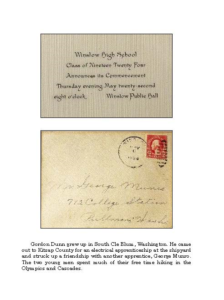 Winslow High School
Class of Nineteen Twenty Four
Announces its Commencement
Thursday evening, May twenty-second
eight o'clock, Winslow Public Hall
Mr. George Munro
712 College Station
Pullman, Wash
Gordon Dunn grew up in South Cle Elum, Washington. He came
out to Kitsap County for an electrical apprenticeship at the shipyard
and struck up a friendship with another apprentice, George Munro.
The two young men spent much of their free time hiking in the
Olympics and Cascades.